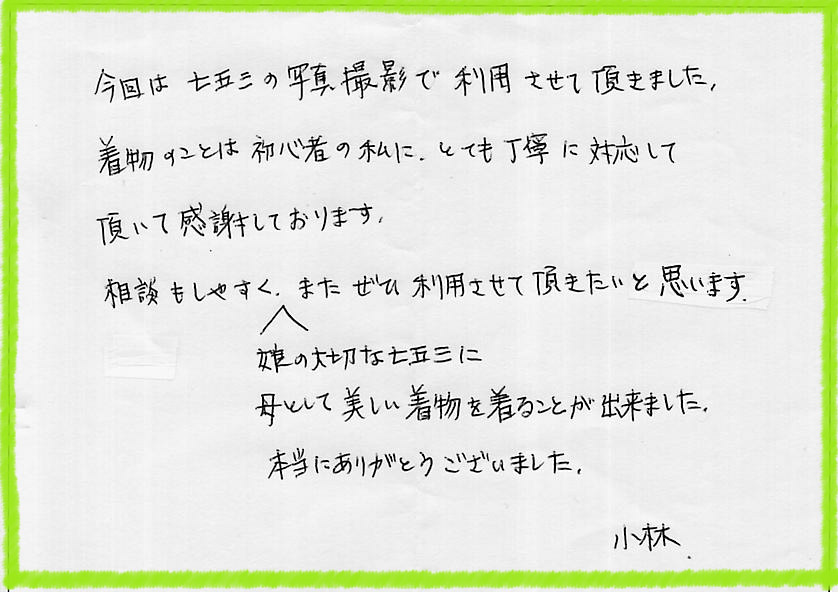 今回は 七五三の写真撮影で 利用 させて 頂きました。
着物のことは 初心者の私に、とても丁寧に 対応して
頂いて感謝しております。
相談もしやすく、また ぜひ 利用させて頂きたいと思います。
娘の大切な七五三に
母として美しい着物を着ることが出来ました。
本当にありがとうございました。
小林